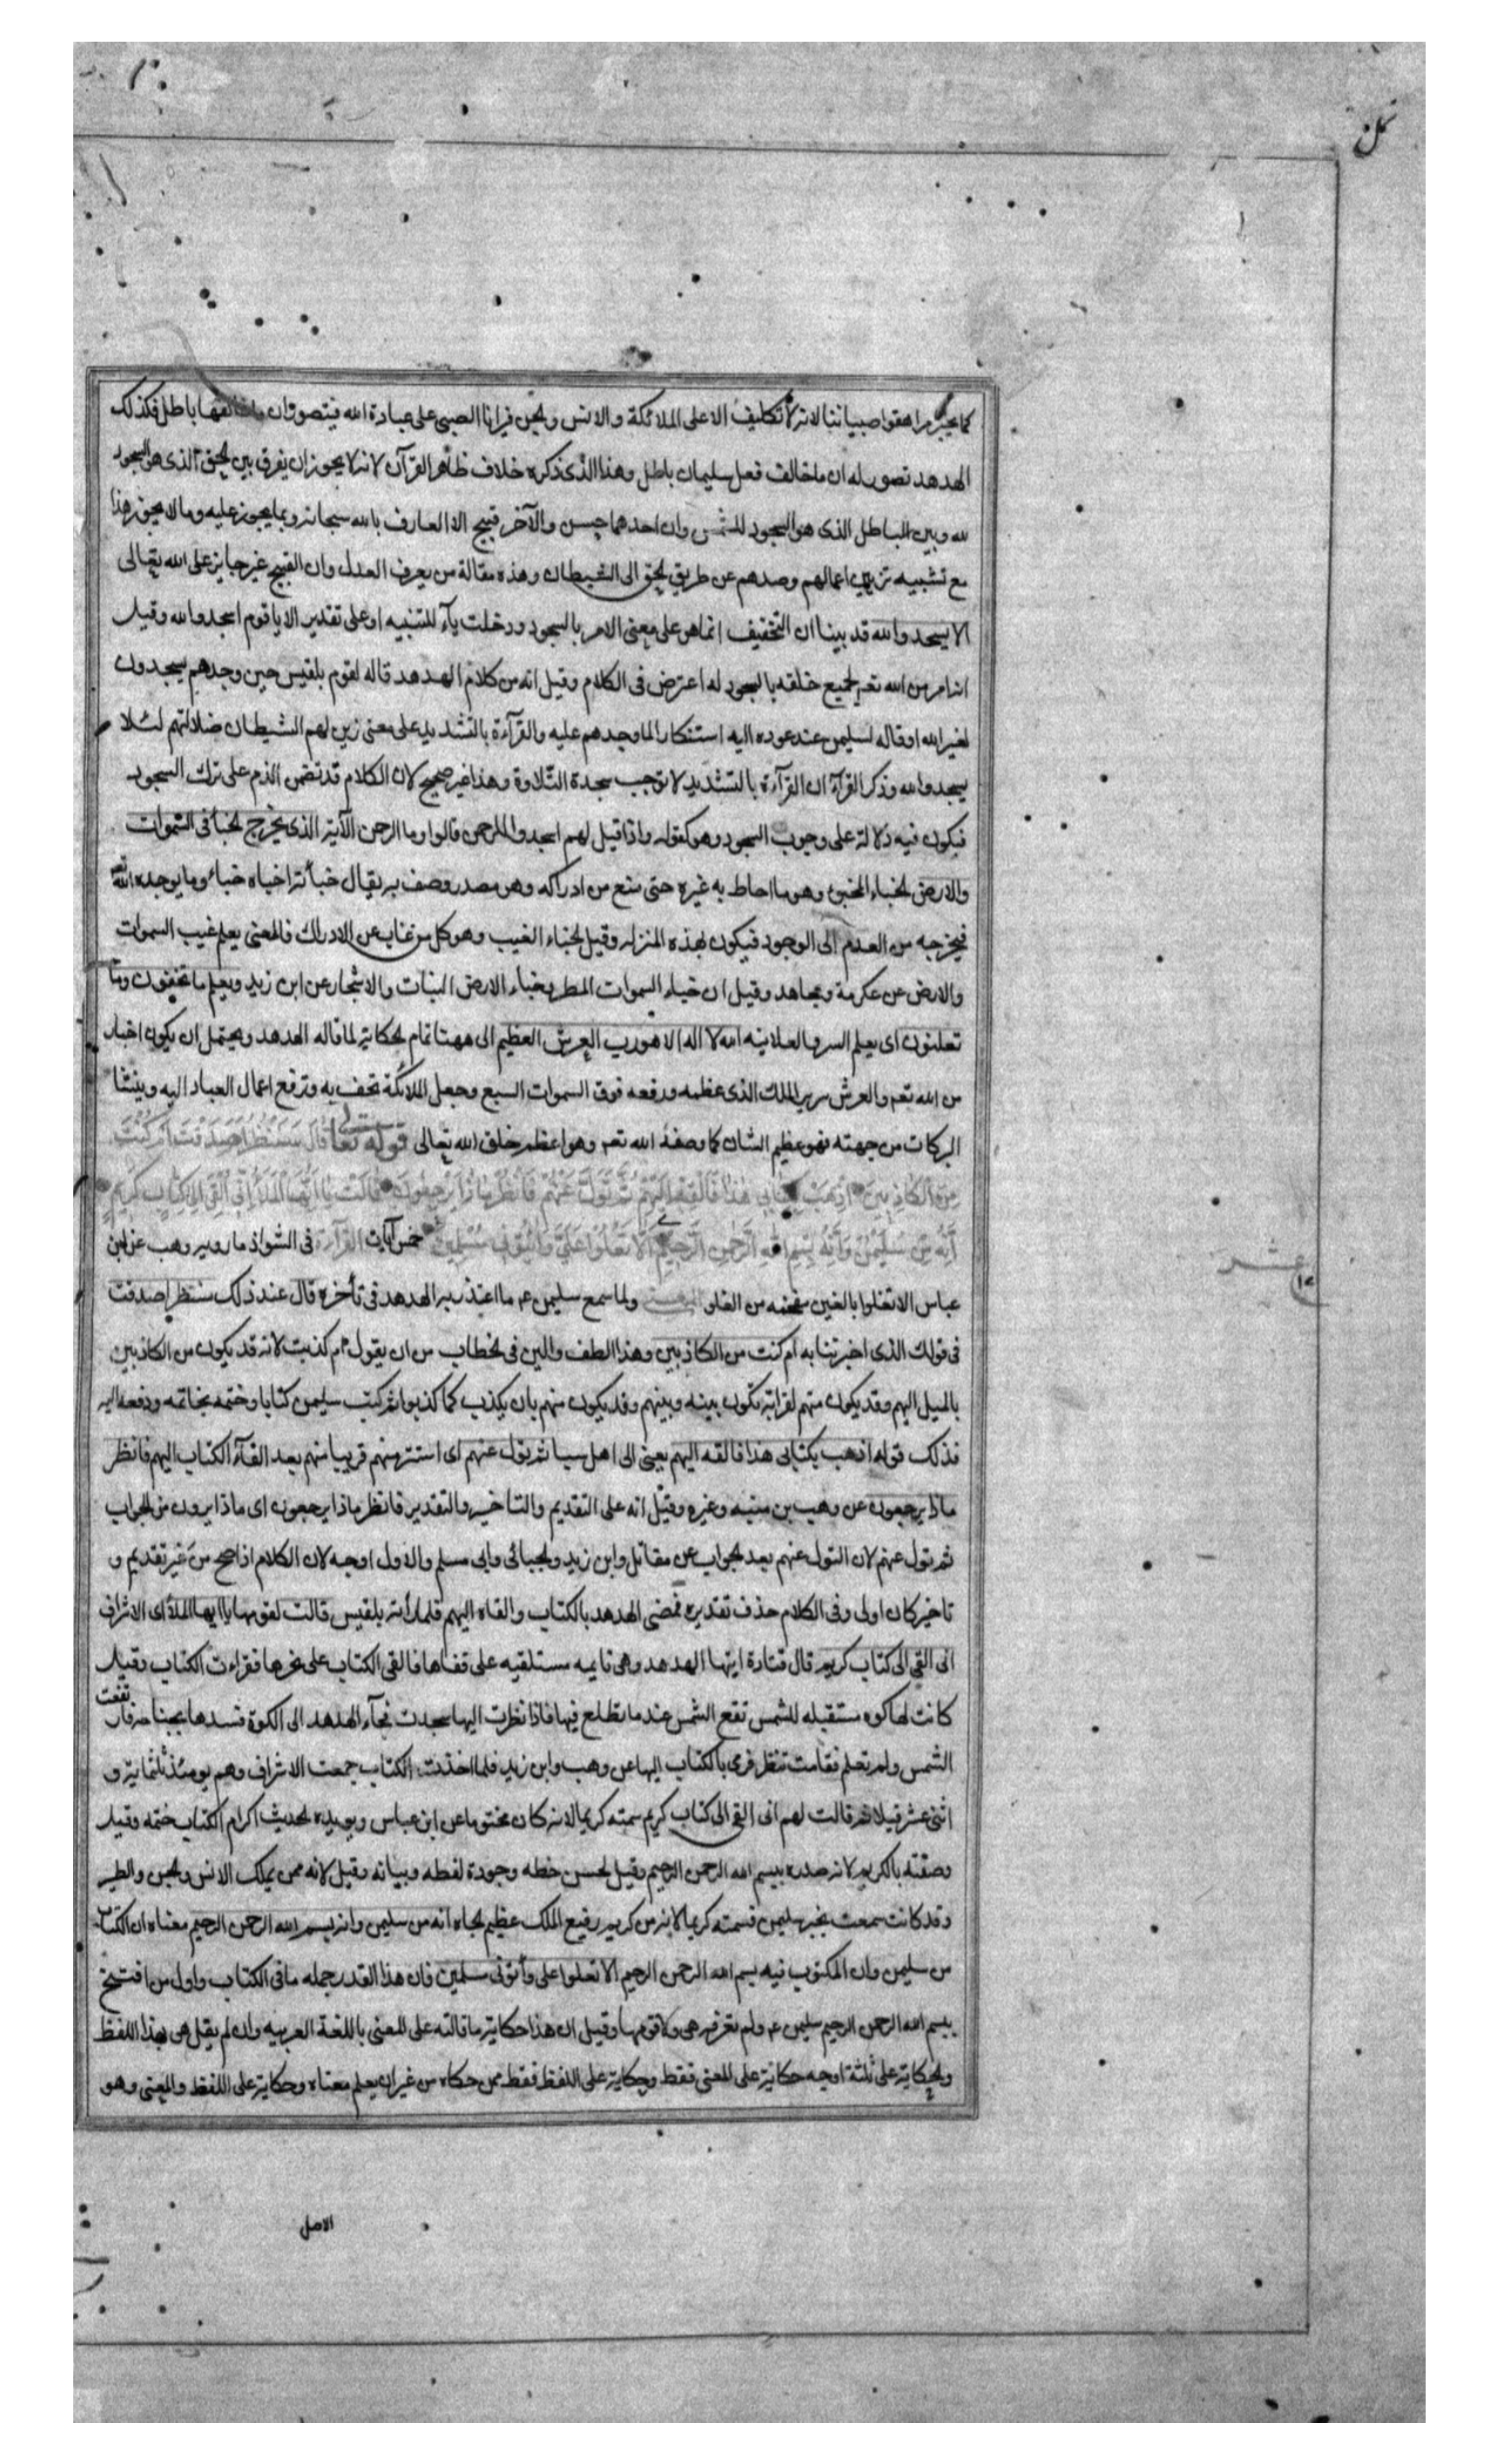 نمل
كما يخبر مراهقوا صبياننا لانه لا تكليف الا على الملائكة والانس والجن فيرانا الصبى على عبادة الله فيتصور ان ما خالفها باطل فكذلك
الهدهد تصور له ان ما خالف فعل سليمان باطل وهذا الذى ذكره خلاف ظاهر القرآن لانه لا يجوز ان يفرق بين الحق الذى هو السجود
لله وبين الباطل الذى هو السجود للشمس وان احدهما حسن والآخر قبيح الا العارف بالله سبحانه وبما يجوز عليه وما لا يجوز هذا
مع تشبيه تزيين اعمالهم وصدهم عن طريق الحق الى الشيطان وهذه مقالة من يعرف العدل وان القبيح غير جايز على الله تعالى
الا يسجدوا لله قد بينا ان التخفيف انما هو على معنى الامر بالسجود ودخلت يآء للتنبيه او على تقدير الا يا قوم اسجدوا لله وقيل
انه امر من الله تعم لجميع خلقه بالسجود له اعترض فى الكلام وقيل انه من كلام الهدهد قاله لقوم بلقيس حين وجدهم يسجدون
لغير الله او قاله لسليمن عند عوده اليه استنكارا لما وجدهم عليه والقرآءة بالتشديد على معنى زين لهم الشيطان ضلالتهم لئلا
يسجدوا لله وذكر الفرآء ان القرآءة بالتشديد لا توجب سجدة التلاوة وهذا غير صحيح لان الكلام قد تضمن الذم على ترك السجود
فيكون فيه دلالة على وجوب السجود وهو كقوله واذا قيل لهم اسجدوا للرحمن قالوا وما الرحمن الآية الذى يخرج الخبأ فى السموات
والارض الخباء المخبو وهو ما احاط به غيره حتى منع من ادراكه وهو مصدر وصف به يقال خبأته اخباه خباء وما يوجده الله تعم
فيخرجه من العدم الى الوجود فيكون بهذه المنزله وقيل الخباء الغيب وهو كل من غاب عن الادراك فالمعنى يعلم غيب السموات
والارض عن عكرمة ومجاهد وقيل ان خباء السموات المطر وخباء الارض النبات والاشجار عن ابن زيد ويعلم ما تخفون وما
تعلنون اى يعلم السر والعلانيه الله لا اله الا هو رب العرش العظيم الى ههنا تمام الحكاية لما قاله الهدهد ويحتمل ان يكون اخبار
من الله تعم والعرش سرير الملك الذى عظمه ورفعه فوق السموات السبع وجعل الملائكة تحف به وترفع اعمال العباد اليه وينشا
البركات من جهته فهو عظيم الشان كما وصفه الله تعم وهو اعظم خلق الله تعالى قوله تعا قال سننظر اصدقت ام كنت
من الكاذبين اذهب بكتابى هذا فالقه اليهم ثم تول عنهم فانظر ماذا يرجعون قالت يا ايها الملأ انى القى الى كتاب كريم
انه من سليمن وانه بسم الله الرحمن الرحيم الا تعلوا على واتونى مسلمين خمس آيات القرآءة فى الشواذ ما رويه وهب عن ابن
عشر
عباس الا تغلوا بالغين معجمه من الغلو ولما سمع سليمن عم ما اعتذر به الهدهد فى تأخره قال عند ذلك سننظر اصدقت
فى قولك الذى اخبرتنا به ام كنت من الكاذبين وهذا الطف والين فى الخطاب من ان يقول ام كذبت لانه قد يكون من الكاذبين
بالميل اليهم وقد يكون منهم لقرابة تكون بينه وبينهم وقد يكون منهم بان يكذب كما كذبوا ثم كتب سليمن كتابا وختمه بخاتمه ودفعه اليه
فذلك قوله اذهب بكتابى هذا فالقه اليهم يعنى الى اهل سبا ثم تول عنهم اى استتر منهم قريبا منهم بعد القآء الكتاب اليهم فانظر
ماذا يرجعون عن وهب بن منبه وغيره وقيل انه على التقديم والتاخير والتقدير فانظر ماذا يرجعون اى ماذا يردون من الجواب
ثم تول عنهم لان التول عنهم بعد الجواب عن مقاتل وابن زيد والجبائى وابى مسلم والاول اوجه لان الكلام اذا صح من غير تقديم و
تاخير كان اولى وفى الكلام حذف تقديره فمضى الهدهد بالكتاب والقاه اليهم فلما رأته بلقيس قالت لقومها يا ايها الملأ اى الاشراف
انى القى الى كتاب كريم قال قتادة اتيها الهدهد وهى نايمه مستلقيه على قفاها فالقى الكتاب على نحرها فقراءت الكتاب وقيل
كانت لها كوه مستقبله للشمس تقع الشمس عند ما تطلع فيها فاذا نظرت اليها سجدت فجآء الهدهد الى الكوة فسدها بجناحه فارتفعت
الشمس ولم تعلم فقامت تنظر فرمى بالكتاب اليها عن وهب وابن زيد فلما اخذت الكتاب جمعت الاشراف وهم يومئذ ثلثماية و
اثنى عشر قيلا ثم قالت لهم انى القى الى كتاب كريم سمته كريما لانه كان مختوما عن ابن عباس ويويده الحديث اكرام الكتاب ختمه وقيل
وصفته بالكريم لانه صدره ببسم الله الرحمن الرحيم وقيل لحسن خطه وجودة لفظه وبيانه وقيل لانه ممن يملك الانس والجن والطير
وقد كانت سمعت بخبر سليمن فسمته كريما لانه من كريم رفيع الملك عظيم الجاه انه من سليمن وانه بسم الله الرحمن الرحيم معناه ان الكتاب
من سليمن وان المكتوب فيه بسم الله الرحمن الرحيم الا تعلوا على وأتونى مسلمين فان هذا القدر جمله ما فى الكتاب واول من افتتح
ببسم الله الرحمن الرحيم سليمن عم ولم تعرفه هى ولا قومها وقيل ان هذا حكاية ما قالته على المعنى باللغة العربيه وان لم يقل هى بهذا اللفظ
والحكاية على ثلثة اوجه حكاية على المعنى فقط وحكاية على اللفظ فقط ممن حكاه من غير ان يعلم معناه وحكاية على اللفظ والمعنى وهو
الاصل